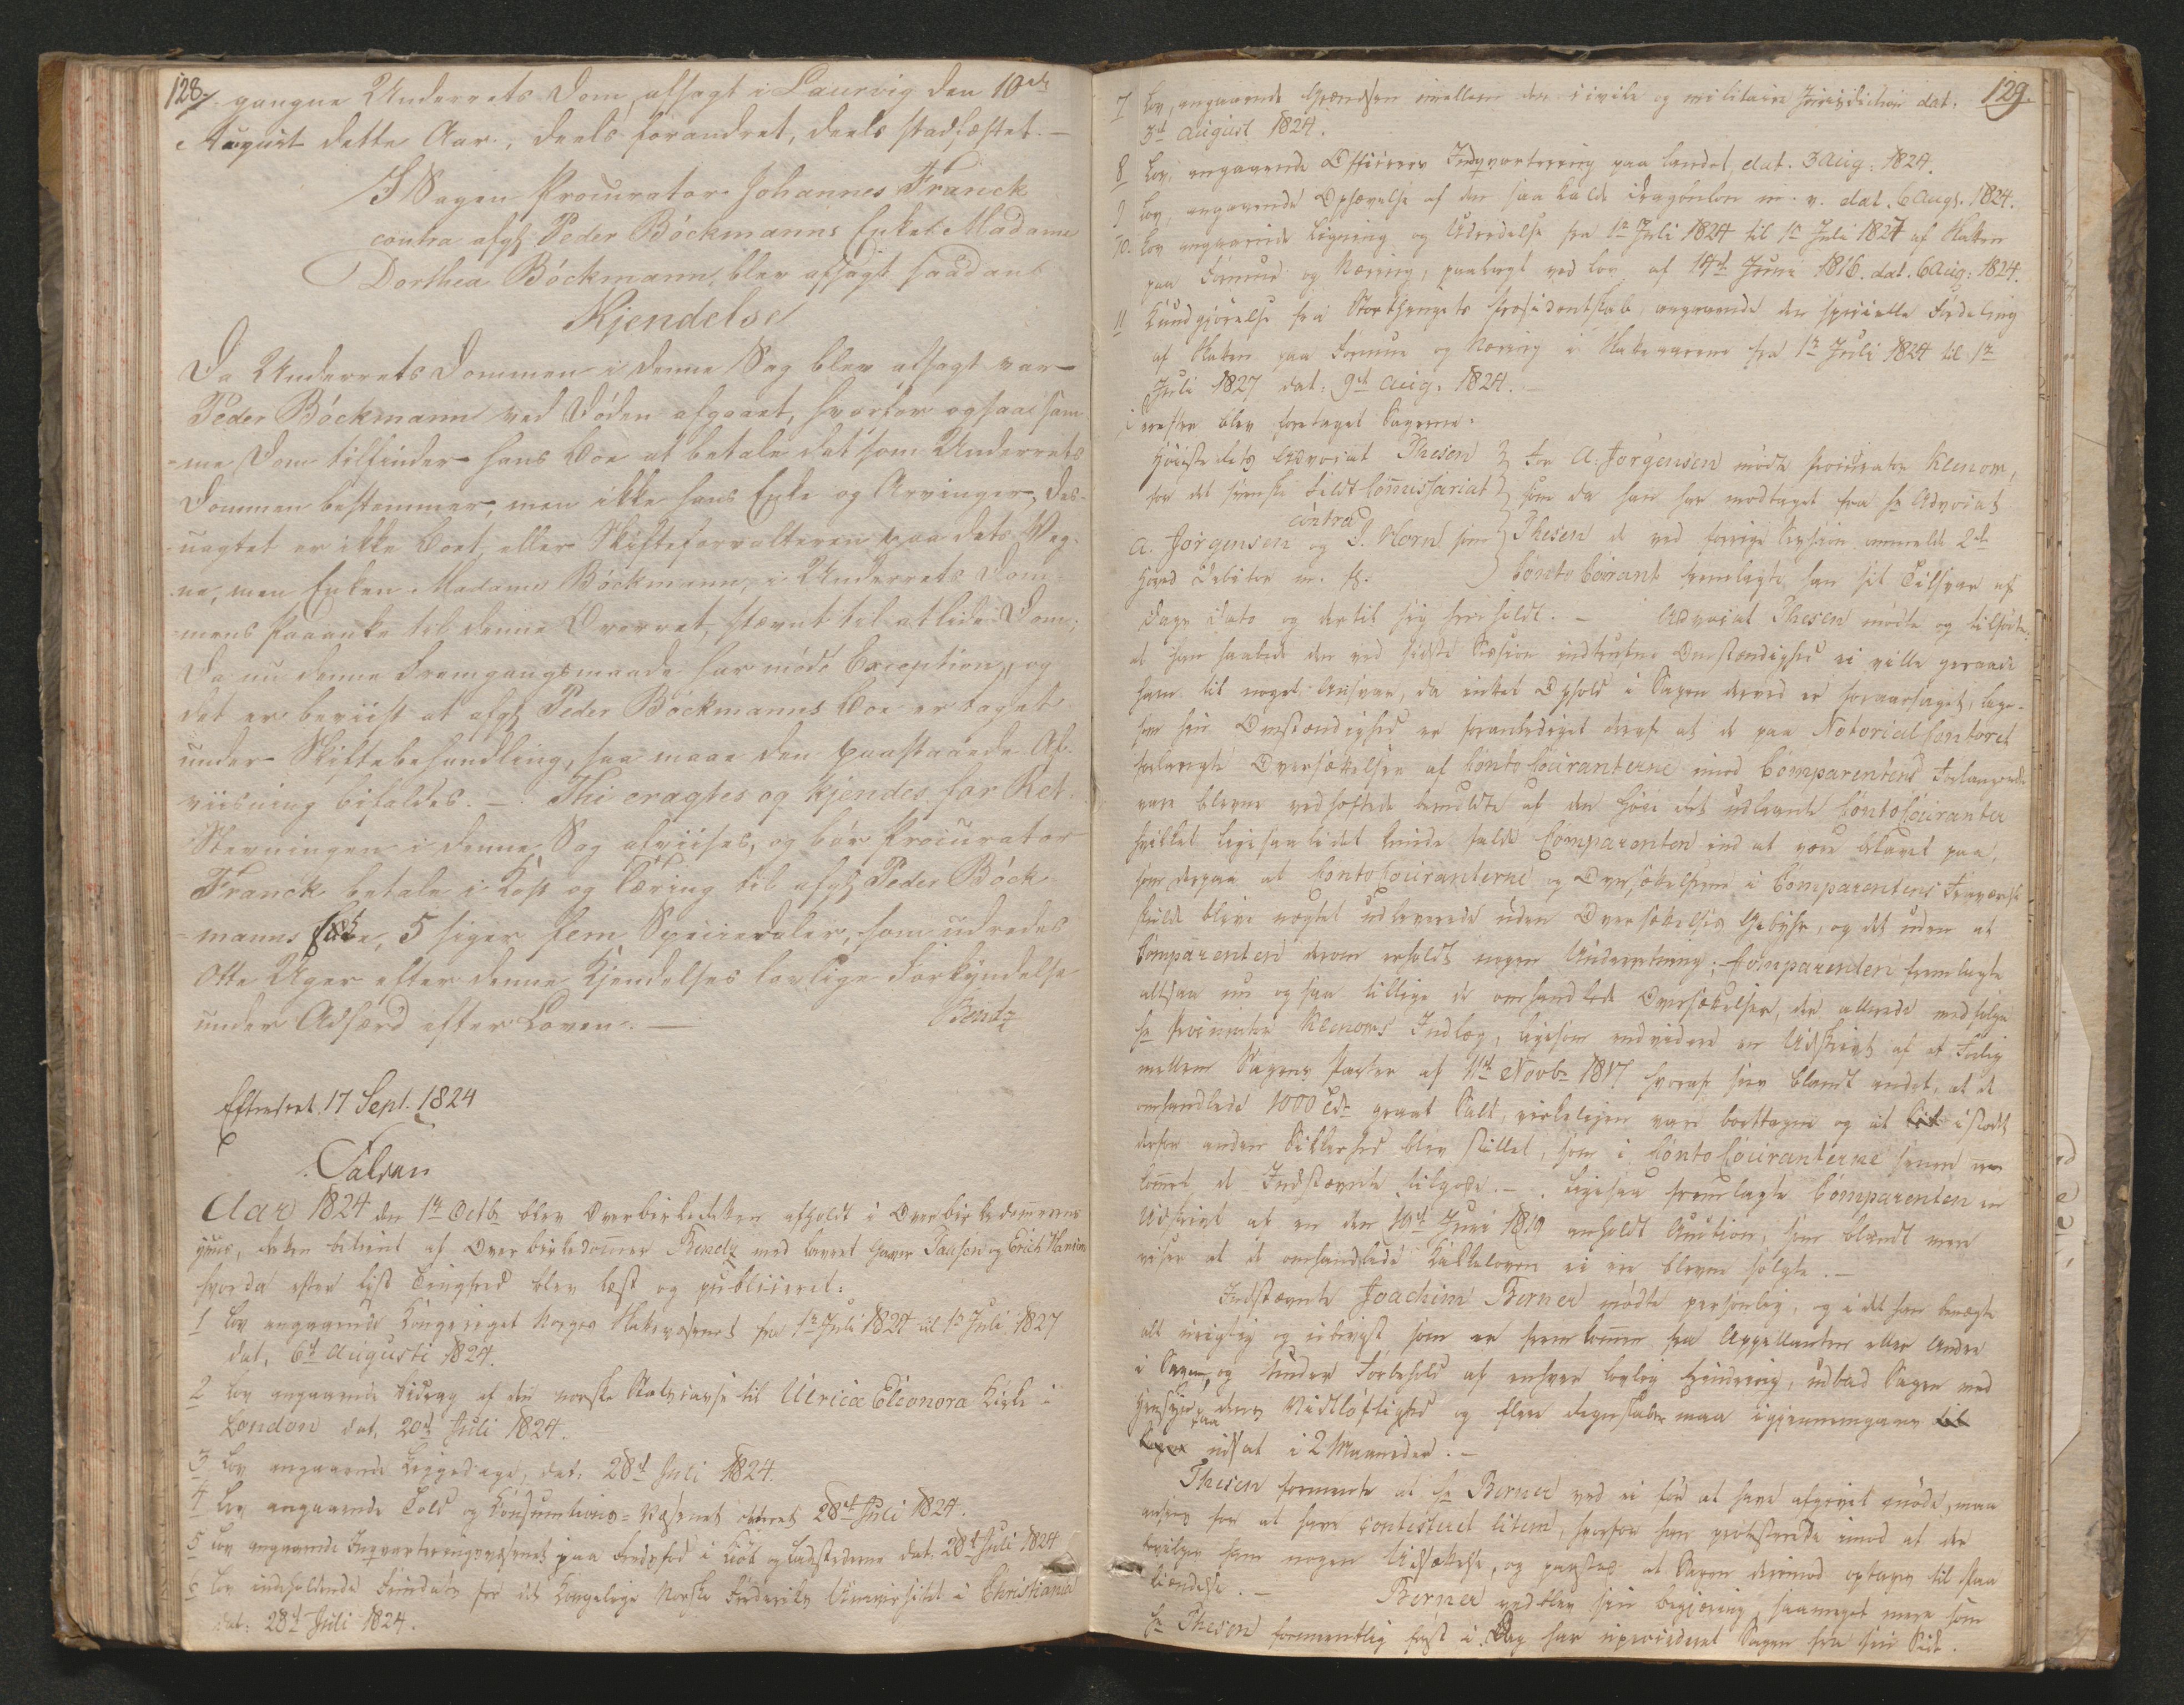 128.
gangne Underrets Dom, afsagt i Laurvig den 10de
August dette Aar, deels forandret, deels stadfæstet. —
I Sagen Procurator Johannes Franck
contra afg: Peder Böckmanns Enke Madame
Dorthea Böckmann, blev afsagt saadan
Kjendelse
Da Underrets Dommen i denne Sag blev afsagt var
Peder Böckmann ved Döden afgaaet, hvorfor ogsaa sam-
me Dom tilfinder hans Boe at betale det som Underrets
Dommen bestemmer, men ikke hans Enke og Arvinger, des-
uagtet er ikke Boet, eller Skifteforvalteren paa dets Veg-
ne, men Enken Madame Böckmann, i Underrets Dom-
mens Paaanke til denne Overret, stævnt til at lide Dom;
Da nu denne Fremgangsmaade har mödt Exception, og
det er beviist at afg: Peder Böckmanns Boe er taget
under Skiftebehandling, saa maae den paastaaede Af-
viisning bifaldes. — Thi eragtes og kjendes for Ret
Stevningen i denne Sag afviises, og bör Procurator
Franck betale i Kost og Tæring til afg: Peder Böck-
manns Enke, 5 siger fem Speciedaler, som udredes
Otte Uger efter denne Kjendelses lovlige Forkyndelse
under Adfærd efter Loven. —
Bendz
Efterseet 17 Sept. 1824
Falsen
Aar 1824 den 1te Octbr blev Overbirkeretten afholdt i Overbirkedommerens
huus, Retten betient af Overbirkedommer Bendz med Lavret
hvorda efter lyst Tingfred blev læst og publiceret:
1 Lov angaaende Kongeriget Norges Skattevæsenet fra 1te Juli 1824 til 1te Juli 1827
dat. 6te Augusti 1824.
2 Lov angaaende Bidrag af den norske Statscasse til Ulrica Eleonora Kirke i
London dat. 20de Juli 1824.
3 Lov angaaende Liggedage, dat: 28de Juli 1824.
4 Lov angaaende Told og Consumtions-Væsenet dateret 28de Juli 1824.
5 Lov angaaende Inqvarteringsvæsenet paa Fredsfod i Kiöb og Ladstederne dat. 28de Juli 1824
6 Lov indeholdende Fundats for det Kongelige Norske Frederiks Universitet i Christiania
dat: 28de Juli 1824.
129.
7 Lov, angaaende Grændsen imellem den civile og militaire Jurisdiction dat:
3de August 1824.
8 Lov, angaaende Officierers Inqvartering paa Landet, dat. 3 Aug: 1824.
9 Lov, angaaende Ophævelse af den saa kaldte Dragonlön m. v. dat. 6 Augt. 1824.
10. Lov angaaende Ligning og Udredelse fra 1te Juli 1824 til 1te Juli 1827 af Skatten
paa Formue og Næring, paalagt ved Lov af 14de Juni 1816. dat. 6 Aug: 1824.
11 Kundgjörelse fra Storthingets Præsidentskab, angaaende den specielle Fordeling
af Skatten paa Formue og Næring i Skatteaarene fra 1te Juli 1824 til 1te
Juli 1827 dat: 9de Aug: 1824. —
blev foretaget Sagerne:
Höiesterets Advocat Thesen
for det svenske Feldt Commissariat
contra
A. Jörgensen og J. Horn som
hoved Debitor m. fl.
For A. Jörgensen mödte Procurator Klenow,
som da han har modtaget fra Hr Advocat
Thesen de ved forrige Session anmeldte 2de
Conto Courant fremlagte han sit Tilsvar af
Dags Dato og dertil sig henholdt. — Advocat Thesen mödte og tilföiede
at han haabede den ved sidste Session indtrufne Omstændighed ei ville geraade
ham til noget Ansvar, da intet Ophold i Sagen derved er foraarsaget, lige-
som hin Omstændighed er foranlediget deraf at de paa Notorialcontoret
forlangte Oversættelser af Conto Couranterne imod Comparentens Forlangende
vare blevne vedhæftede de udlaante Conto Couranter
hvilket ligesaalidet kunde falde Comparenten ind at være betænkt paa,
som derpaa at Conto Couranterne og Oversættelserne i Comparentens Fraværelse
skulde blive nægtet udleverede uden Oversættelses Gebyhr, og det uden at
Comparenten derom erholdt nogen Underretning; Comparenten fremlagte
altsaa nu ogsaa tillige de omhandlede Oversættelser, der allerede medfulgte
Hr Procurator Klenows Indlæg, ligesom endvidere en Udskrivt af et Forlig
mellem Sagens Parter af 11te Novbr 1817 hvoraf sees blandt andet, at de
omhandlede 1000 Tdr groot Salt, virkeligen vare borttagne og at i Stedet
derfor anden Sikkerhed blev stillet, som i Conto Couranterne
kommet de Indstævnte tilgode. — Ligesaa fremlagte Comparenten en
Udskrivt af en den 19de Juni 1819 anholdt Auction, som blandt mere
viser at de omhandlede ei ere blevne solgte. —
Indstævnte Joachim Berner mödte personlig, og i det han benægte
alt urigtig og som er fremkommen fra Appellanten eller Andre
i Sagen, og under Forbehold af enhver lovlig Gjendrivning, udbad Sagen med
Hensyn paa dens Vidtlöftighed og flere Regnskaber maa igjennemgaaes
udsat i 2 Maaneder. —
Thesen formente at Hr Berner ved ei for at have afgivet möde, maa
ansees for at have contesteret litem, hvorfor han protesterede imod at der
bevilges ham nogen Udsættelse, og paastod at Sagen derimod optages til
Kiendelse. — Berner vedblev sin begjæring, saameget mere som
Hr Thesen formentlig först i Dag har Sagen fra sin Side.